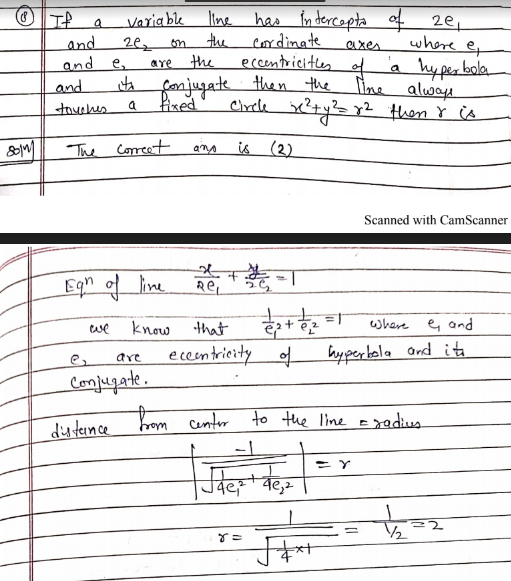 ⑧ If a variable line has intercepts of 2e₁
and 2e₂ on the cordinate axes where e₁
and e₂ are the eccentricities of a hyperbola
and its conjugate then the line always
touches a fixed circle x²+y²=r² then r is
Solⁿ The correct ans is (2)
Scanned with CamScanner
Eqⁿ of line x/2e₁ + y/2e₂ = 1
we know that 1/e₁² + 1/e₂² = 1 where e₁ and
e₂ are eccentricity of hyperbola and its
conjugate.
distance from center to the line = radius
|-1/√(1/4e₁² + 1/4e₂²)| = r
r = 1/√(1/4 × 1) = 1/(1/2) = 2